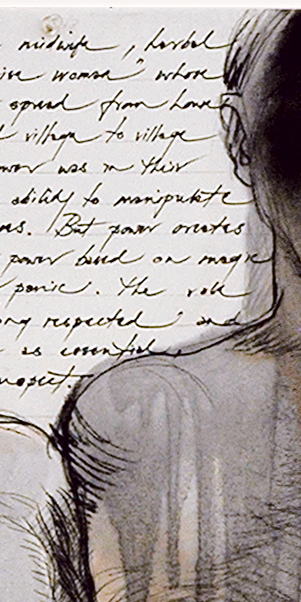 midwife, herbal
wise woman" whose
spread from home
village to village
power was in their
ability to manipulate
But power creates
power based on magic
panic. The role
respected and
as essential